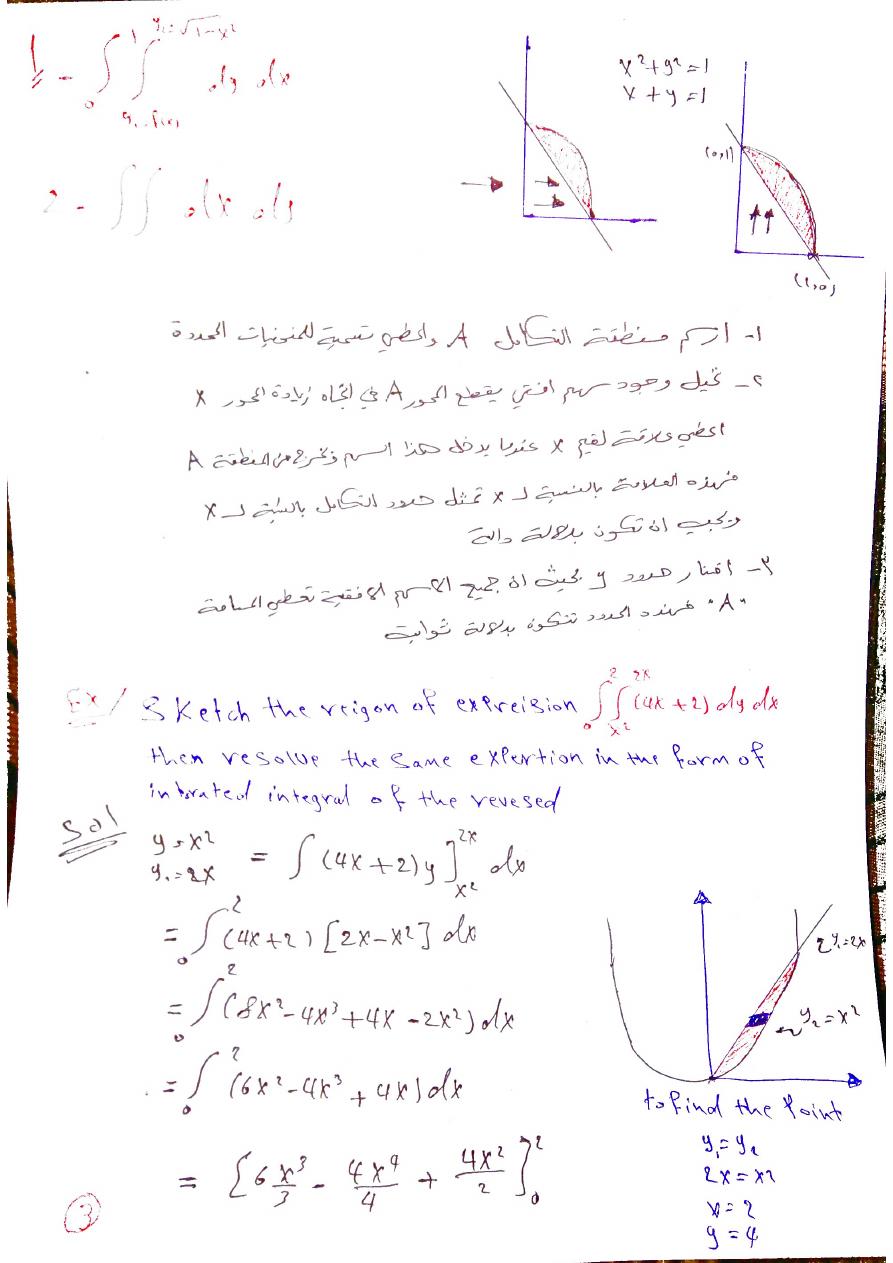 1 - ∫₀¹ ∫_{y₁=f(x)}^{y₂=√1-x²} dy dx
x²+y²=1
x+y=1
(0,1)
(1,0)
2 - ∫∫ dx dy
١- ارسم منطقة التكامل A واعطي تسمية للمنحنيات المحددة
٢- تخيل وجود سهم افقي يقطع المحور A في اتجاه زيادة المحور x
اعطي علاقة لقيم x عندما يدخل هذا السهم وتخرج من المنطقة A
فهذه العلامة بالنسبة لـ x تمثل حدود التكامل بالنسبة لـ x
ويجب ان تكون بدلالة دالة
٣- اختار حدود y بحيث ان جميع الاسهم الافقية تعطي المساحة
"A" فهذه الحدود تتكون بدلالة ثوابت
Ex/ Sketch the reigon of expreision ∫₀² ∫_{x²}^{2x} (4x+2) dy dx
then resolve the same expertion in the form of
intorated integral of the revesed
Sol
y=x²
y₁=2x
= ∫ (4x+2)y]_{x²}^{2x} dx
= ∫₀² (4x+2) [2x-x²] dx
= ∫₀² (8x²-4x³+4x-2x²) dx
= ∫₀² (6x²-4x³+4x) dx
= [6x³/3 - 4x⁴/4 + 4x²/2]₀²
y₁=2x
y₂=x²
to find the Point
y₁=y₂
2x=x²
x=2
y=4
3